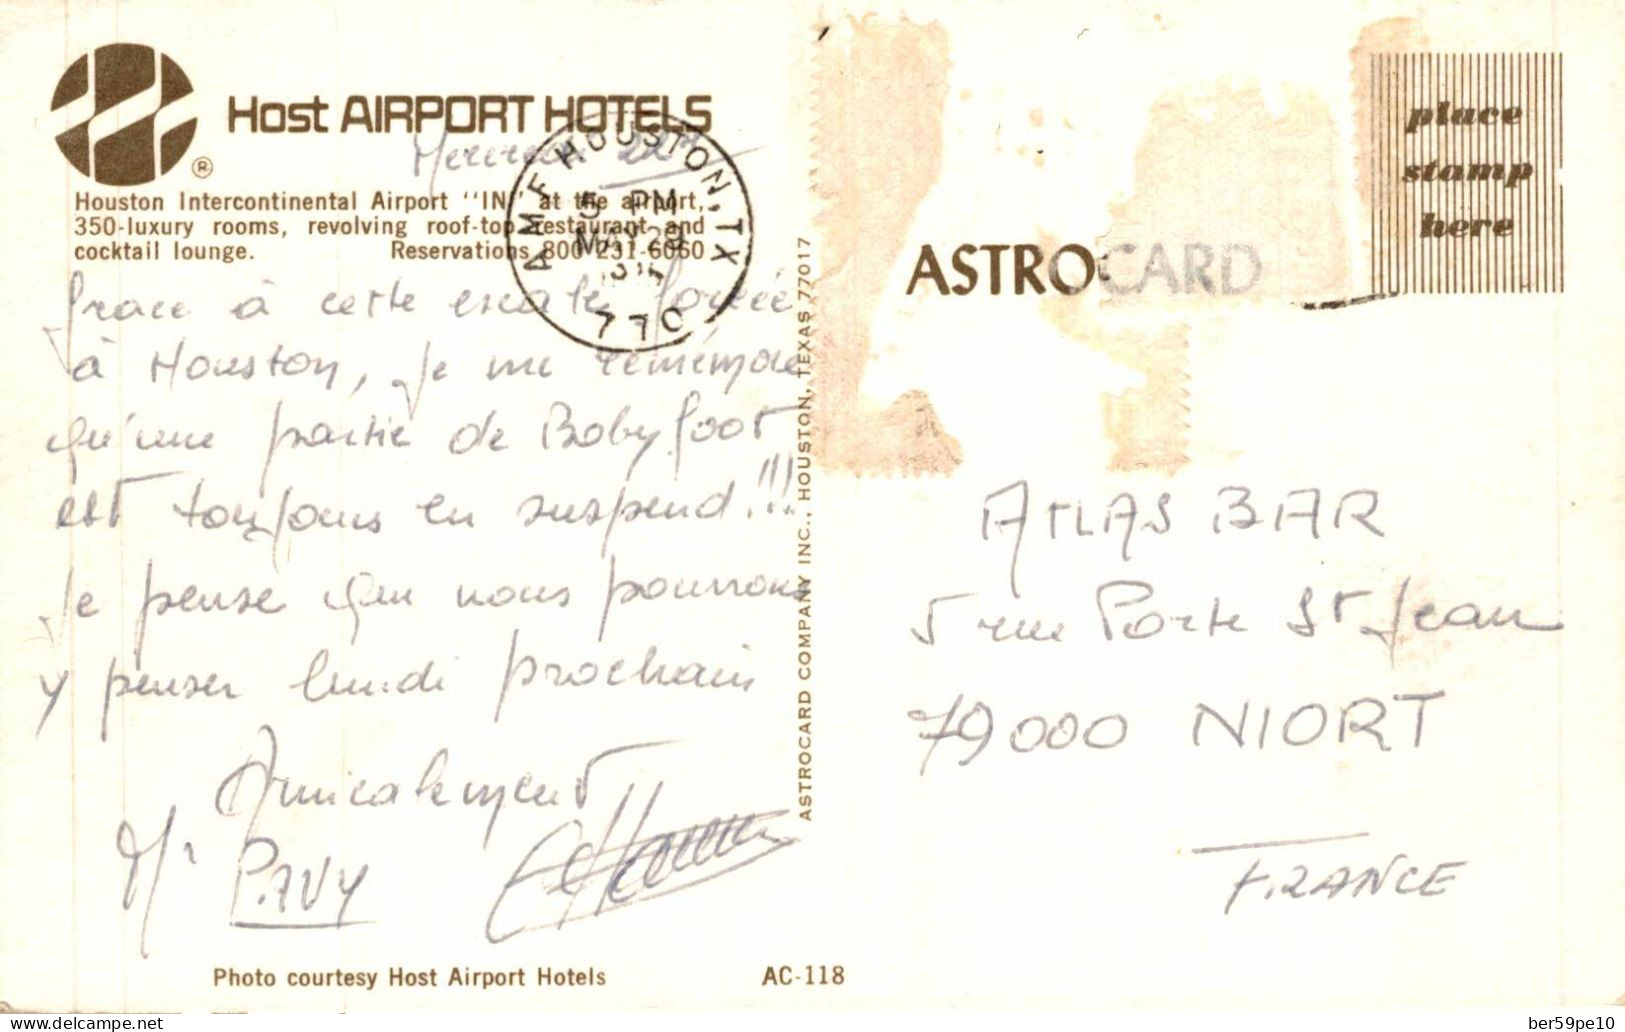 Host AIRPORT HOTELS
®
Houston Intercontinental Airport "IN" at the airport,
350-luxury rooms, revolving roof-top restaurant and
cocktail lounge. Reservations 800-231-6060
HOUSTON, TX
AMF
5 PM
MAR
770
Grace à cette escale forcée
à Houston, je me remémore
qu'une partie de Babyfoot
est toujours en suspend!!!
Je pense que nous pourrons
y penser lundi prochain
Amicalement
Mr PAVY
Photo courtesy Host Airport Hotels
AC-118
ASTROCARD COMPANY INC., HOUSTON, TEXAS 77017
place
stamp
here
ASTROCARD
ATLAS BAR
5 rue Porte St Jean
79000 NIORT
FRANCE
ber59pe10
delcampe.net